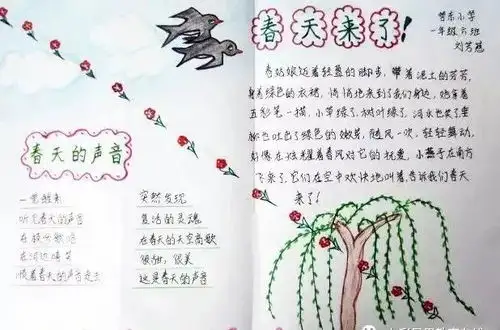 春天来了!
营东小学
一年级六班
春姑娘迈着轻盈的脚步,带着泥土的芳芳,
身着绿色的衣裙,悄悄地来到了我们身边,她拿着
五彩笔一描,小草绿了,树叶绿了,河水也笑了里
柳也吐出了绿色的嫩芽,随风一吹,轻轻舞动,
好像在炫耀着春风对它的抚爱,小燕子在南方
飞来了,它们在空中欢快地叫着,告诉我们春天
来了!
春天的声音
一觉醒来
听见春天的声音
在枝
在河边嘻笑
顺着春天的声音走去
突然发现
复活的灵魂
在春天的天空高歌
很甜,很美
这是春天的声音